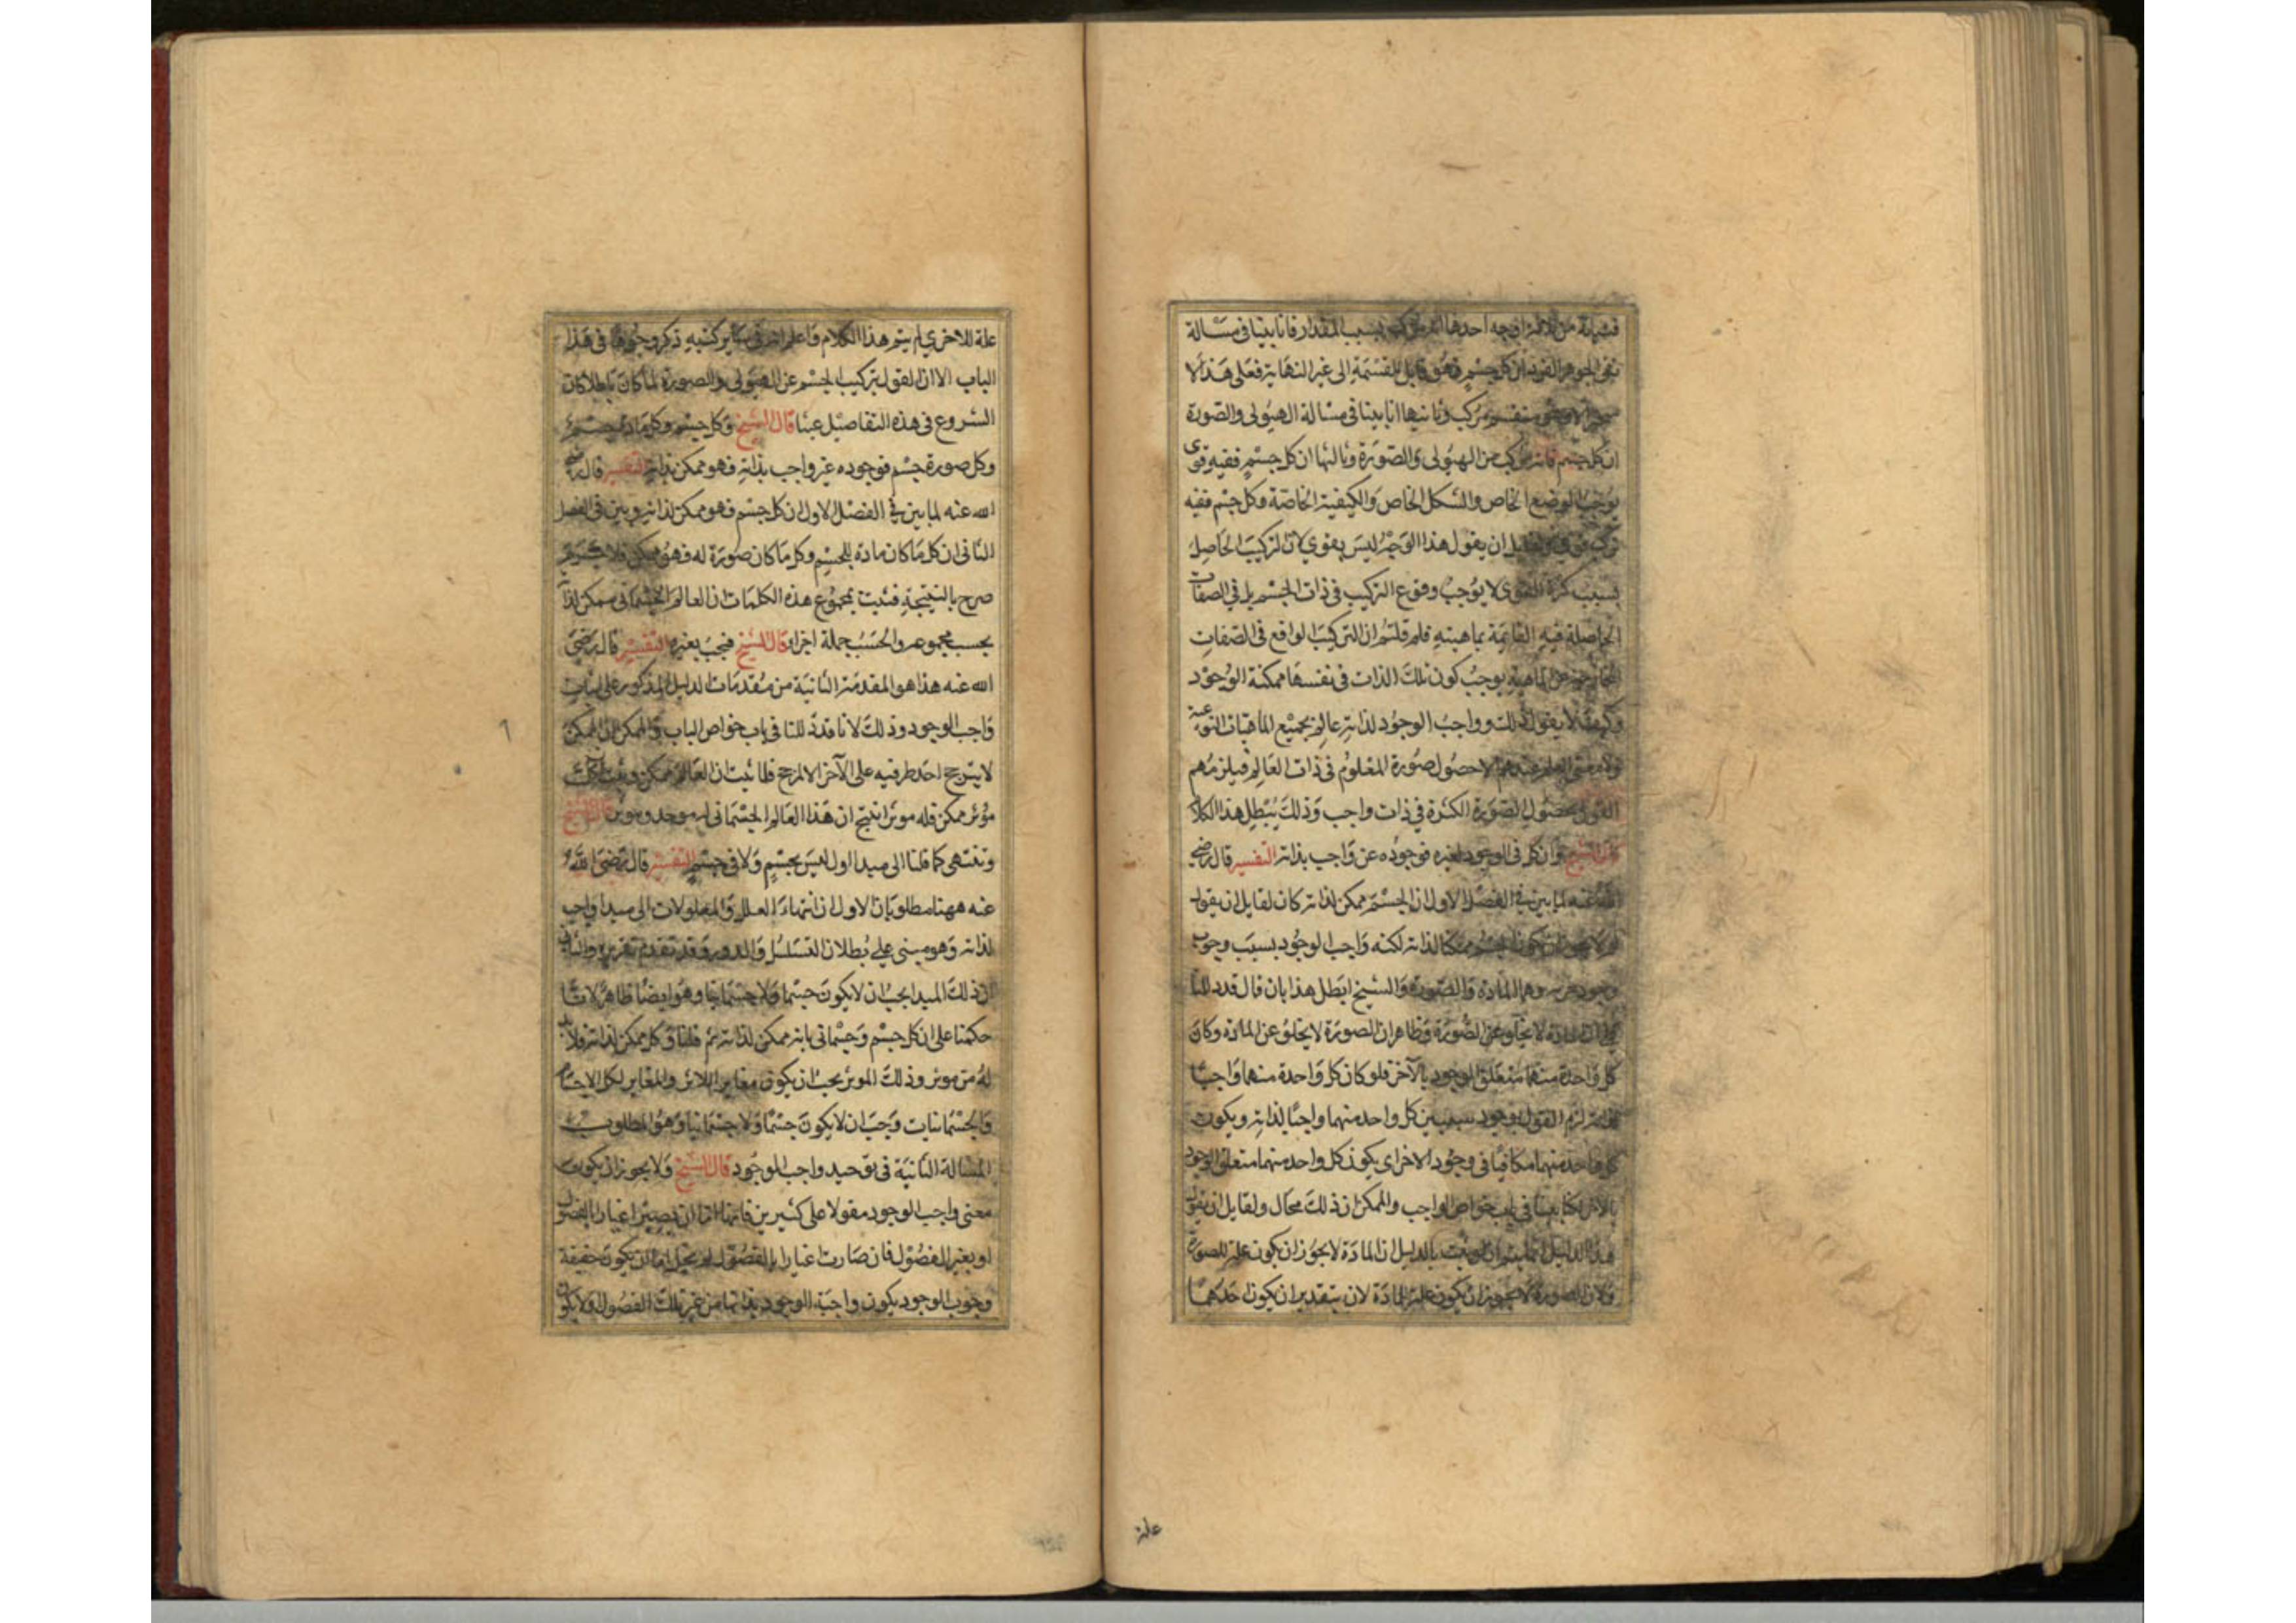 فبيانه من ثلاثة اوجه احدها انه مركب بسبب المقدار فانا بينا فى مسالة
نفى الجوهر الفرد ان كل جسم فهو قابل للقسمة الى غير النهاية فعلى هذا لا
جسم الا وهو منقسم مركب وثانيها انا بينا فى مسالة الهيولى والصورة
ان كل جسم فانه مركب من الهيولى والصورة وثالثها ان كل جسم ففيه قوى
يوجب الوضع الخاص والشكل الخاص والكيفية الخاصة وكل جسم ففيه
تركب قوى ولقايل ان يقول هذا الوجه ليس بقوي لان التركيب الحاصل
بسبب كثرة القوى لا يوجب وقوع التركيب فى ذات الجسم بل في الصفات
الحاصلة فيه القايمة بماهيته فلم قلتم ان التركيب الواقع فى الصفات
الخارجة عن الماهية يوجب كون تلك الذات فى نفسها ممكنة الوجود
وكيف لا يقول ذلك وواجب الوجود لذاته عالم بجميع الماهيات النوعية
ولا معنى للعلم عندهم الا حصول صورة المعلوم فى ذات العالم فيلزمهم
القول بحصول الصورة الكثرة في ذات واجب وذلك يبطل هذا الكلام
قال الشيخ وان كل فى الوجود لغيره فوجوده عن واجب بذاته التفسير قال رضي
الله عنه لما بين فى الفصل الاول ان الجسم ممكن لذاته كان لقايل ان يقول
لم لا يجوز ان يكون الجسم ممكنا لذاته لكنه واجب الوجود بسبب وجوب
وجود جزييه وهما المادة والصورة والشيخ ابطل هذا بان قال قد دللنا
على ان المادة لا يخلو عن الصورة وظاهر ان الصورة لا يخلو عن المادة وكان
كل واحدة منهما متعلق الوجود بالآخر فلو كان كل واحدة منهما واجبا
لذاته لزم القول بوجود سببين كل واحد منهما واجبا لذاته ويكون
كل واحد منهما مكافيا فى وجود الاخر اى يكون كل واحد منهما متعلق الوجود
بالاخر لكنا بينا فى باب خواص الواجب والممكن ان ذلك محال ولقايل ان يقول
هذا الدليل انما يتم ان لو ثبت بالدليل ان المادة لا يجوز ان يكون علة للصورة
ولان الصورة لا يجوز ان يكون علة للمادة لان بتقدير ان يكون احدهما
علة
علة للاخرى لم يتم هذا الكلام واعلم انه فى ساير كتبه ذكر وجوها فى هذا
الباب الا ان القول بتركيب الجسم عن الهيولى والصورة لما كان باطلا كان
الشروع فى هذه التفاصيل عبثا قال الشيخ وكل جسم وكل مادة جسم
وكل صورة جسم فوجوده غير واجب بذاته فهو ممكن بذاته التفسير قال رضي
الله عنه لما بين فى الفصل الاول ان كل جسم فهو ممكن لذاته وبين فى الفصل
الثانى ان كل ما كان مادة للجسم وكل ما كان صورة له فهو ممكن فلا جرم
صرح بالنتيجة فثبت بمجموع هذه الكلمات ان العالم الجسمانى ممكن لذاته
بحسب مجموعه والحسب جملة اجزائه قال الشيخ فيجب بغيره التفسير قال رضى
الله عنه هذا هو المقدمة الثانية من مقدمات الدليل المذكور على اثبات
واجب الوجود وذلك لانا قد دللنا فى باب خواص الباب والممكن ان الممكن
لا يترجح احد طرفيه على الآخر الا لمرجح فلما ثبت ان العالم ممكن وثبت ان كل
مؤثر ممكن فله موثر انتج ان هذا العالم الجسمانى له موجد وموثر قال الشيخ
وتنتهى كما قلنا الى مبدا اول ليس بجسم ولا فى جسم التفسير قال رضى الله
عنه ههنا مطلوبان الاول ان انتهاء العلل والمعلولات الى مبدا واجب
لذاته وهو مبنى على بطلان التسلسل والدور وقد تقدم تقريره والثانى
ان ذلك المبدا يجب ان لا يكون جسما ولا جسمانيا وهو ايضا ظاهر لانا
حكمنا على ان كل جسم وجسمانى بانه ممكن لذاته ثم قلنا وكل ممكن لذاته فلا بد
له من موثر وذلك الموثر يجب ان يكون مغايرا للاثر والمغاير لكل الاجسام
والجسمانيات وجب ان لا يكون جسما ولا جسمانيا وهو المطلوب
المسالة الثانية فى توحيد واجب الوجود قال الشيخ ولا يجوز ان يكون
معنى واجب الوجود مقولا على كثيرين فانها اما ان يصير اغيارا بالفصول
او بغير الفصول فان صارت اغيارا بالفصول لم يخل اما ان يكون حقيقة
وجوب الوجود يكون واجبة الوجود بذاتها من غير تلك الفصول او لا يكون